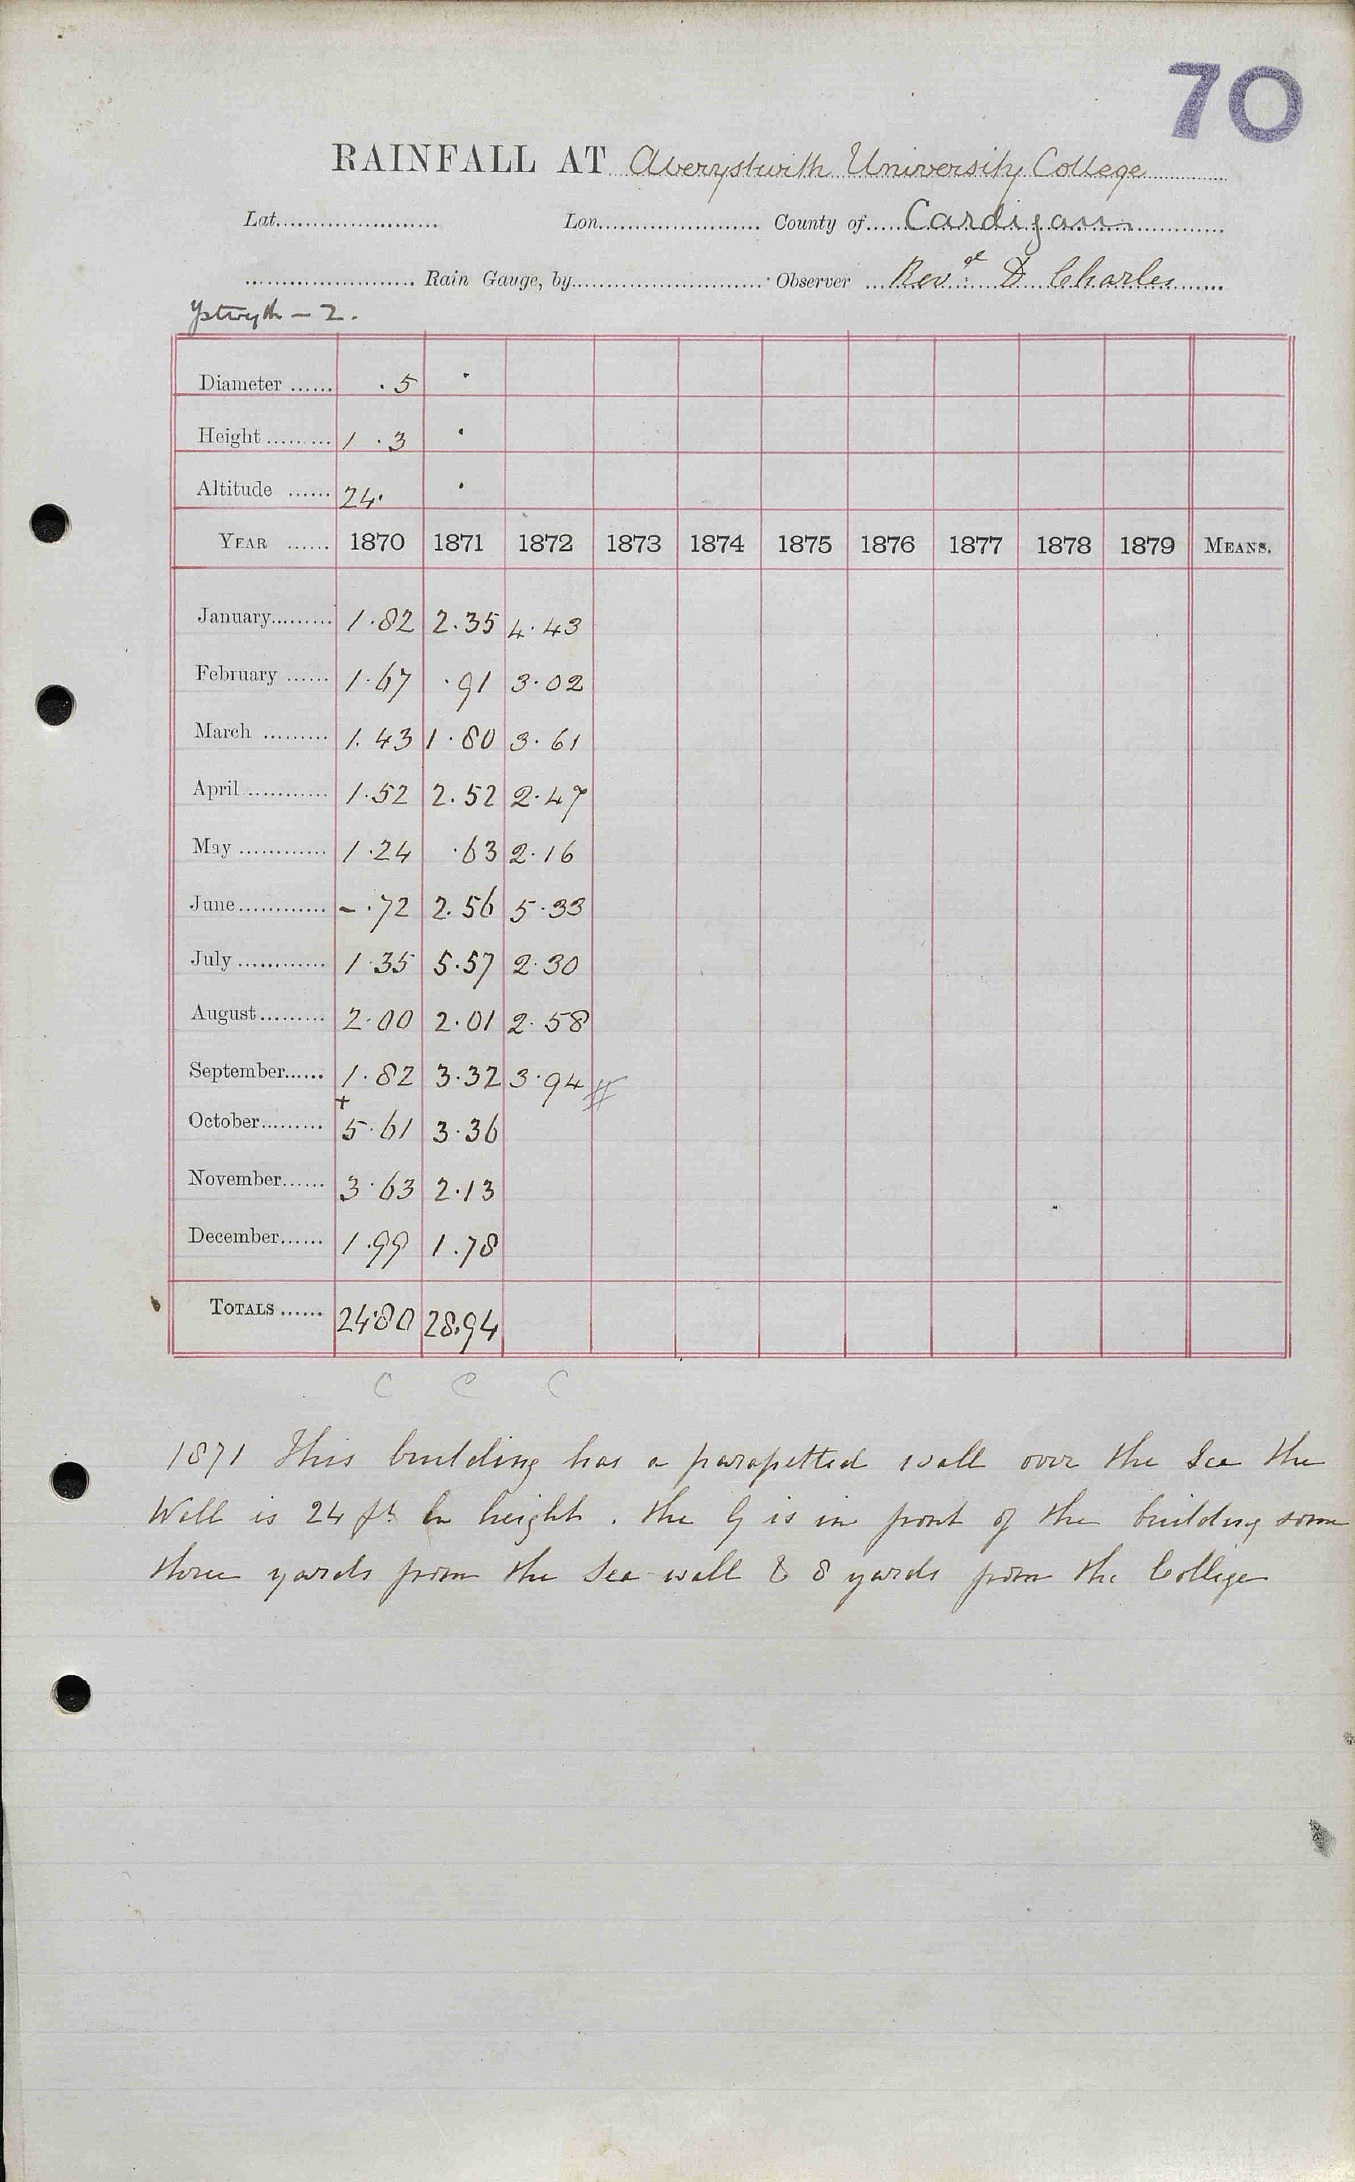 70
RAINFALL AT Aberystwith University College
Lat. Lon. County of Cardigan
Rain Gauge, by Observer Revd. D Charles
Ystwyth - 2.
Diameter .5 .
Height 1 .3 .
Altitude 24. .
YEAR 1870 1871 1872 1873 1874 1875 1876 1877 1878 1879 MEANS.
January 1.82 2.35 4.43
February 1.67 .91 3.02
March 1.43 1.80 3.61
April 1.52 2.52 2.47
May 1.24 .63 2.16
June -.72 2.56 5.33
July 1.35 5.57 2.30
August 2.00 2.01 2.58
September 1.82 3.32 3.94 #
+
October 5.61 3.36
November 3.63 2.13
December 1.99 1.78
TOTALS 24.80 28.94
C C C
1871 This building has a parapetted wall over the Sea the
Wall is 24 ft in height. the G is in front of the building some
three yards from the Sea wall & 8 yards from the College